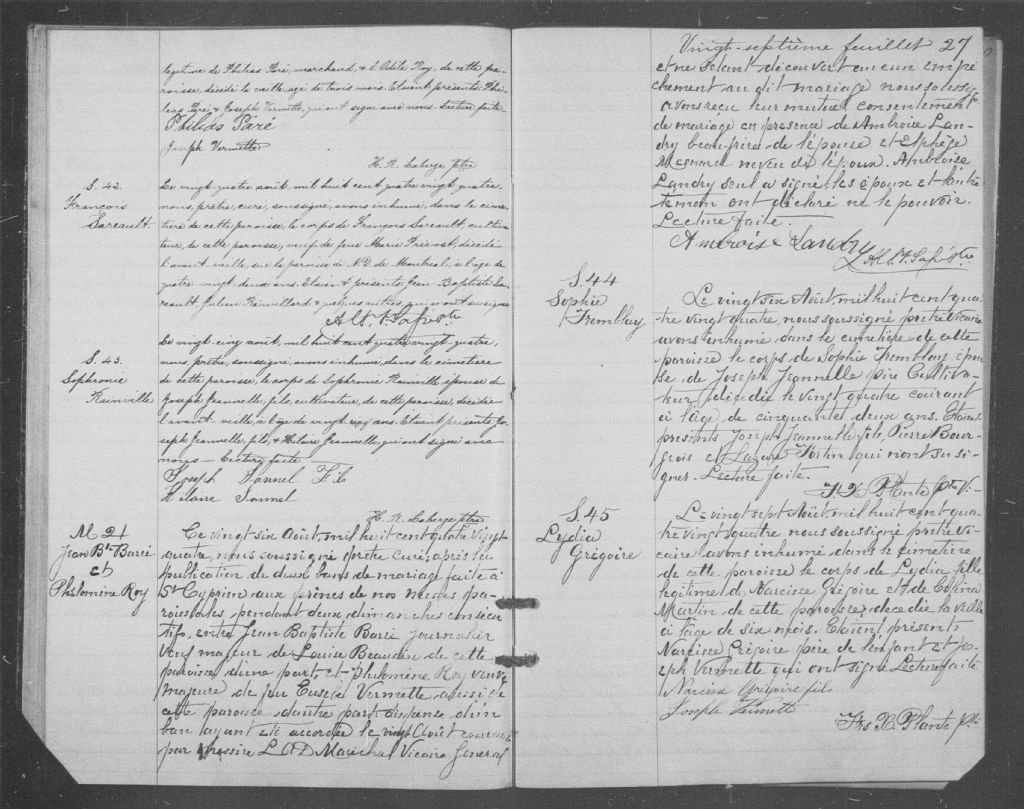 légitime de Philéas Paré, marchand, & d'Odile Roy, de cette pa-
roisse, décédé la veille, agé de trois mois. Etaient présents: Phi-
léas Paré, & Joseph Vermette, qui ont signé avec nous. Lecture faite
Philéas Paré
Joseph Vermette
H. R. Laberge ptre
S. 42.
François
Sareault.
Le vingt quatre août, mil huit cent quatre vingt quatre,
nous, prêtre, curé, soussigné, avons inhumé, dans le cime-
tière de cette paroisse, le corps de François Sareault, cultiva-
teur, de cette paroisse, veuf de feue Marie Priénost, décédé
l'avant veille, sur la paroisse de N. D. de Montréal, à l'age de
quatre vingt deux ans. Etaient présents: Jean Baptiste Sa-
reault, Julien Rémillard & quelques autres, qui n'ont su signer
S. 43.
Sophronie
Rainville
Le vingt cinq août, mil huit cent quatre vingt quatre,
nous, prêtre, soussigné, avons inhumé, dans le cimetière
de cette paroisse, le corps de Sophronie Rainville, épouse de
Joseph Jeannelle, fils, cultivateur, de cette paroisse, décédée
l'avant-veille, à l'âge de vingt cinq ans. Etaient présents: Jo-
seph Jeannelle, fils, & Hilaire Jeannelle, qui ont signé avec
nous — Lecture faite
Joseph Jannel Fils
Hilaire Jannel
H. R. Laberge ptre
M 21
Jean Bte Barié
et
Philomine Roy
Ce vingt six Août mil huit cent quatre vingt
quatre, nous soussigné prêtre curé; après la
publication de deux bans de mariage faite à
St Cyprien aux prônes de nos messes pa-
roissiales pendant deux dimanches consécu-
tifs, entre Jean Baptiste Barié journalier
veuf majeur de Louise Beaudin de cette
paroisse d'une part, et Philomène Roy veuve
majeure de feu Eusèbe Vermette aussi de
cette paroisse d'autre part; dispense d'un
ban ayant été accordée le vingt Août courant
par Messire L O D Maréchal Vicaire Général
Vingt-septième feuillet 27
et ne s'étant découvert aucun empê
chement au dit mariage nous soussigné
avons reçu leur mutuel consentement
de mariage en présence de Ambroise Lan-
dry beau-frère de l'épouse et Elphège
Mesnard neveu de l'époux. Ambroise
Landry seul a signé; les époux et l'autre
témoin ont déclaré ne le pouvoir.
Lecture faite.
Ambroise Landry
S. 44
Sophie
Tremblay
Le vingt six Août mil huit cent qua-
tre vingt quatre, nous soussigné prêtre Vicaire
avons inhumé dans le cimetière de cette
paroisse le corps de Sophie Tremblay épou-
se de Joseph Jeannelle père Cultiva-
teur, décédée le vingt quatre courant
à l'âge de cinquante deux ans. Etaient
présents Joseph Jeannelle fils, Pierre Bour-
geois et Lazare Fortin qui n'ont su si-
gner. Lecture faite.
Fr X Plante Ptre Vi-
S. 45
Lydia
Grégoire
Le vingt sept Août mil huit cent qua-
tre vingt quatre nous soussigné prêtre Vi-
caire, avons inhumé dans le cimetière
de cette paroisse le corps de Lydia fille
légitime de Narcisse Grégoire et de
Martin de cette paroisse, décédée la veille
à l'âge de six mois. Etaient présents
Narcisse Grégoire père de l'enfant et Jo-
seph Vermette qui ont signé Lecture faite
Narcisse Grégoire fils
Joseph Vermette
Frs X Plante Ptre